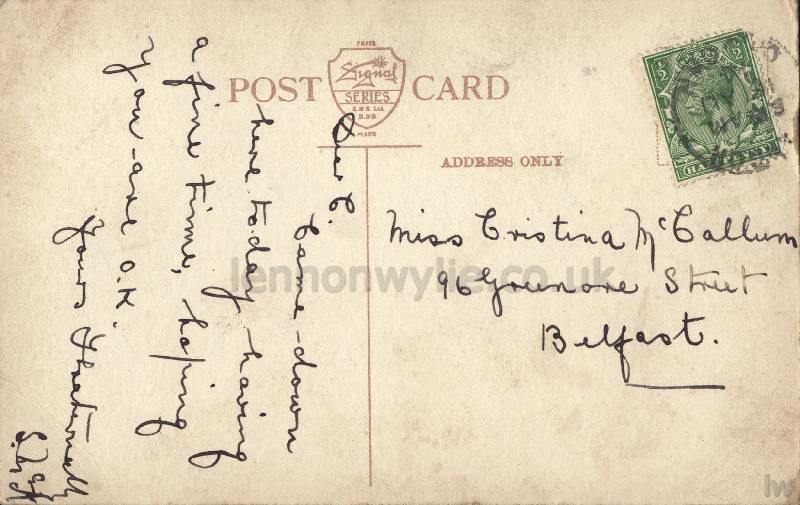 POST CARD
TRADE
Signal
SERIES
E.& S. Ltd.
D.&B
MARK
ADDRESS ONLY
Dear C.
Came-down
here to.day having
a fine time, hoping
you-are O.K.
Yours Fraternally
Miss Cristina McCallum
96 Greenore Street
Belfast.
1/2 1/2
lennonwylie.co.uk
lw